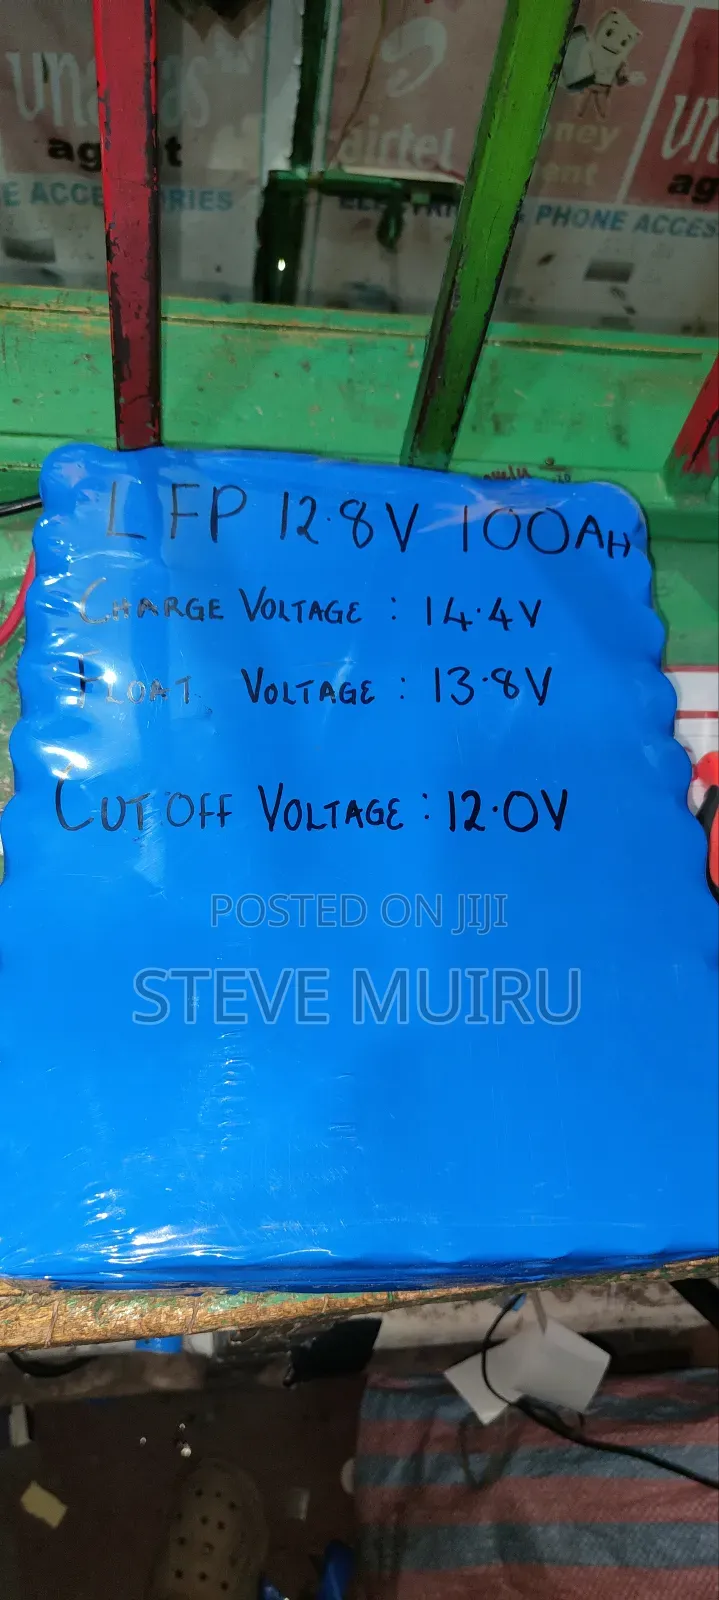 airtel
E ACCE
RIES
PHONE ACCES
LFP 12.8V 100AH
CHARGE VOLTAGE : 14.4V
FLOAT VOLTAGE : 13.8V
CUT OFF VOLTAGE : 12.0V
POSTED ON JIJI
STEVE MUIRU